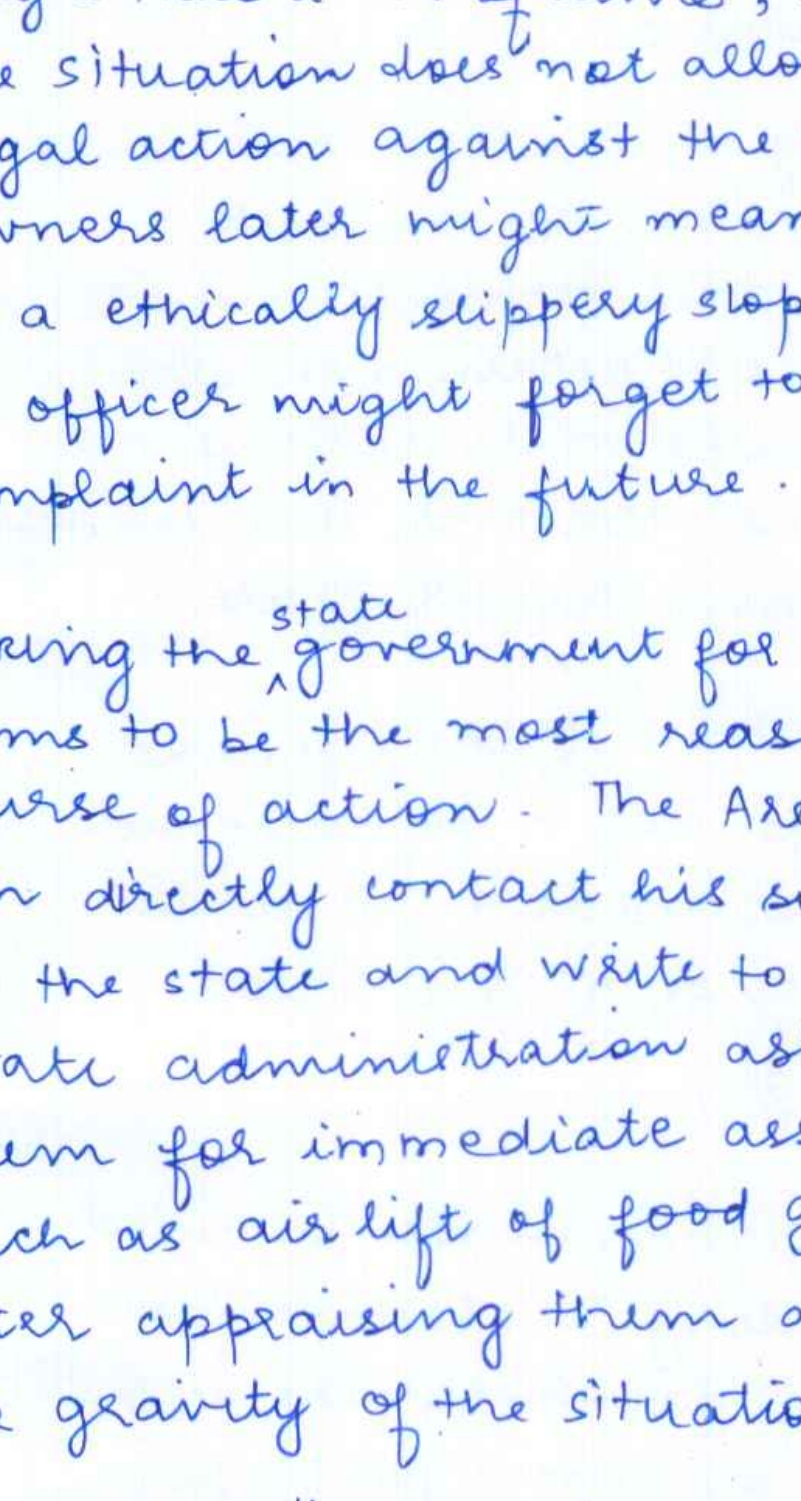 e situation does not allo
gal action against the
wners later might mean
a ethically slippery slop
officer might forget to
mplaint in the future.
king the ^state government for
ms to be the most reas
urse of action. The Are
n directly contact his s
the state and write to
ate administration as
em for immediate ass
ch as air lift of food g
ter appraising them a
e gravity of the situatio